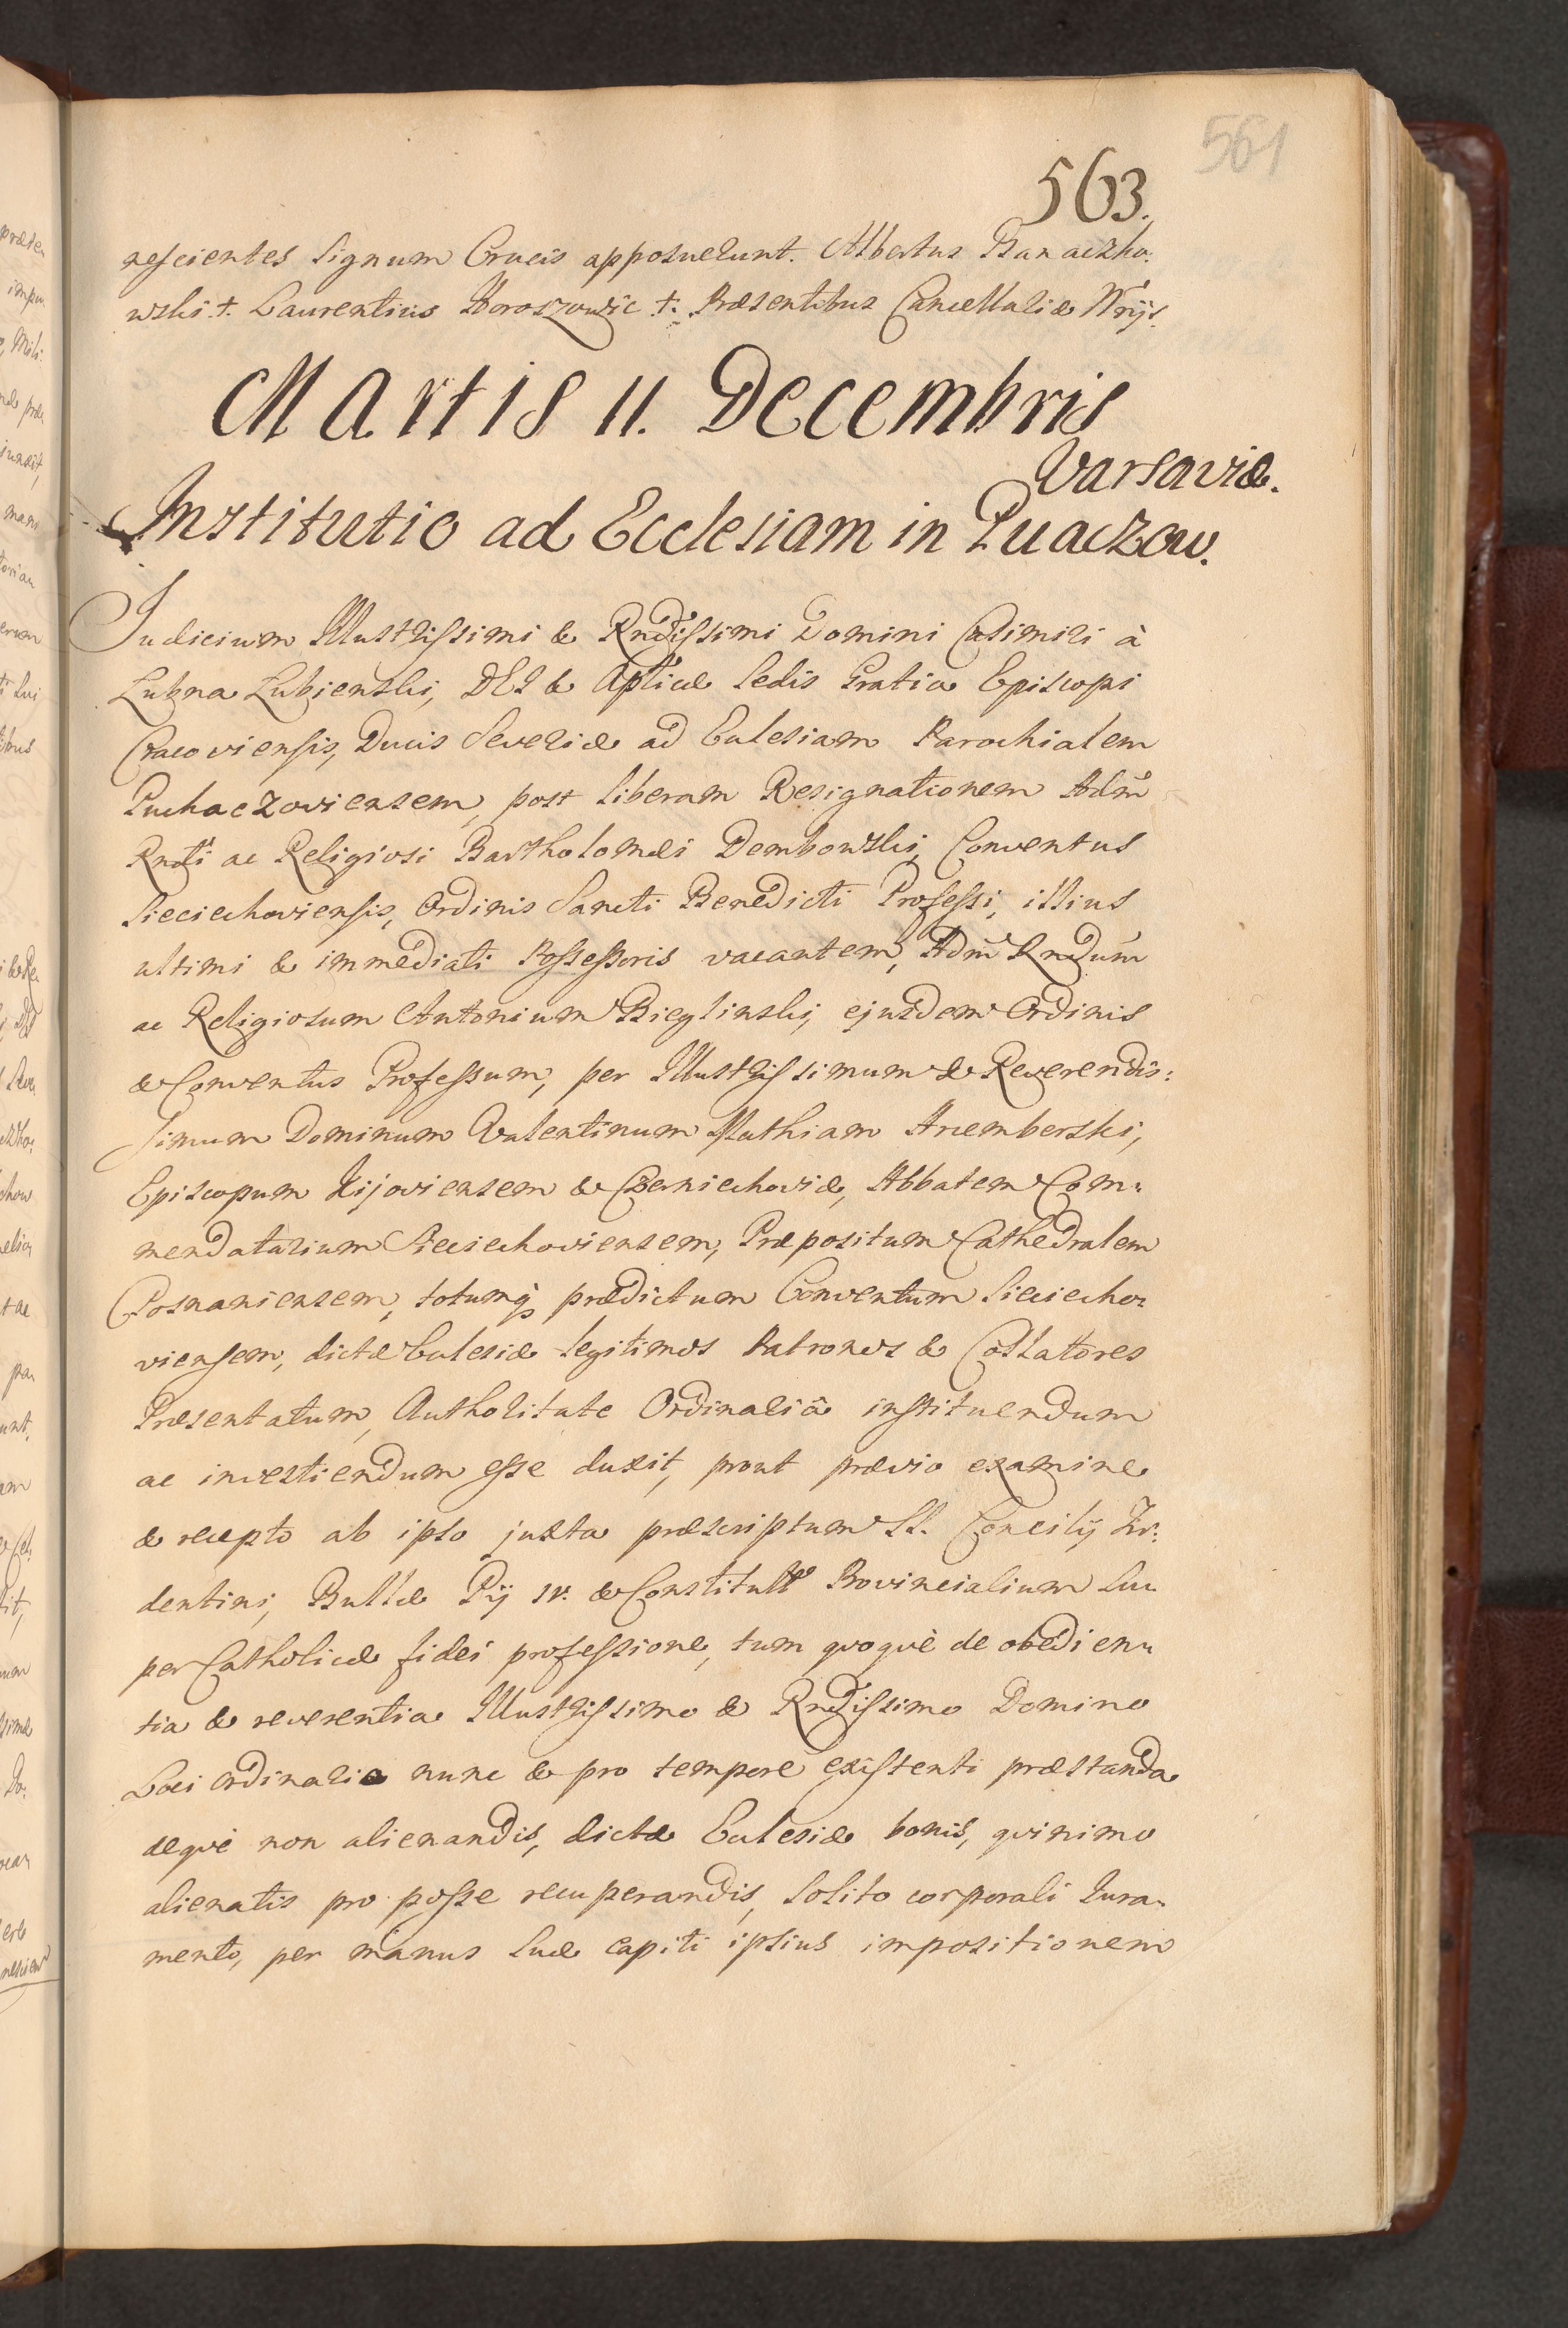 561
563.
nescientes Signum Crucis apposuerunt. Albertus Banaczko:
wski †. Laurentius Moroszowic †. Præsentibus Cancellariæ Nrijs.
Martis 11. Decembris
Varsaviæ.
Institutio ad Ecclesiam in Puaczow.
Judicium Illustrissimi & Rndissimi Domini Casimiri à
Lubna Lubienski, DEI & Aplicæ Sedis Gratia Episcopi
Cracoviensis, Ducis Severiæ ad Eclesiam Parochialem
Puchaczoviensem, post liberam Resignationem Adm
Rndi ac Religiosi Bartholomæi Dembowski, Conventus
Sieciechoviensis, Ordinis Sancti Benedicti Professi, illius
ultimi & immediati Possessoris vacantem, Adm Rndum
ac Religiosum Antonium Bieglinski, ejusdem Ordinis
& Conventus Professum, per Illustrissimum & Reverendis:
simum Dominum Valentinum Mathiam Arcemberski,
Episcopum Kijoviensem & Czerniechoviæ, Abbatem Com:
mendatarium Sieciechoviensem, Præpositum Cathedralem
Posnaniensem, totumq; prædictum Conventum Sieciecho:
viensem, dictæ Eclesiæ legitimos Patronos & Collatores
Præsentatum, Authoritate Ordinariâ instituendum
ac investiendum esse duxit, prout prævio examine
& recepto ab ipso juxta præscriptum SS. Concilij Tri:
dentini, Bullæ Pij IV. & Constitutt Provincialium Su:
per Catholicæ fidei professione, tum quoquè de obedien:
tia & reverentia Illustrissimo & Rndissimo Domino
Loci Ordinario nunc & pro tempore existenti præstanda
deqvè non alienandis, dictæ Eclesiæ bonis, qvinimo
alienatis pro posse recuperandis, Solito corporali Jura:
mento, per manus suæ capiti ipsius impositionem